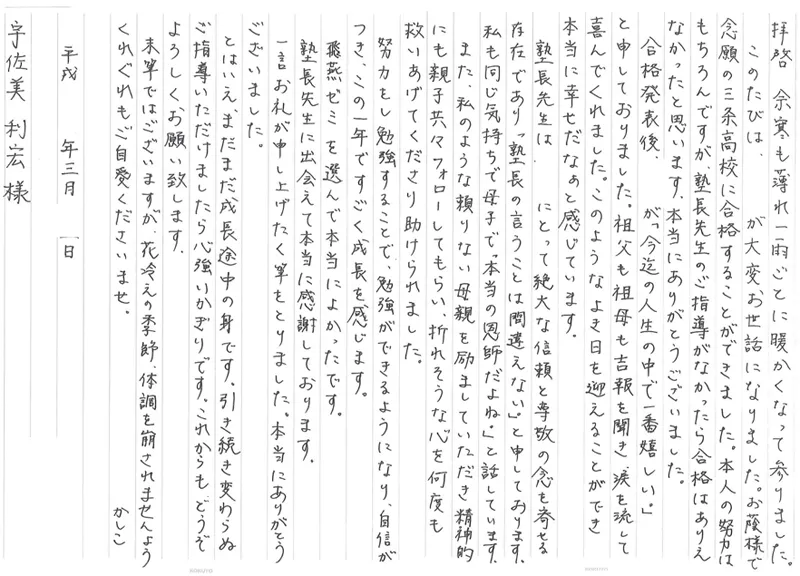 拝啓 余寒も薄れ一雨ごとに暖かくなって参りました。
このたびは、　が大変お世話になりました。お蔭様で
念願の三条高校に合格することができました。本人の努力は
もちろんですが、塾長先生のご指導がなかったら合格はありえ
なかったと思います。本当にありがとうございました。
合格発表後、　が「今迄の人生の中で一番嬉しい。」
と申しておりました。祖父も祖母も吉報を聞き涙を流して
喜んでくれました。このようなよき日を迎えることができ
本当に幸せだなぁと感じています。
塾長先生は　にとって絶大な信頼と尊敬の念を寄せる
存在であり「塾長の言うことは間違えない。」と申しております。
私も同じ気持ちで母子で「本当の恩師だよね。」と話しています。
また、私のような頼りない母親を励ましていただき精神的
にも親子共々フォローしてもらい、折れそうな心を何度も
救いあげてくださり助けられました。
努力をし勉強することで、勉強ができるようになり、自信が
つき、この一年ですごく成長を感じます。
飛燕ゼミを選んで本当によかったです。
塾長先生に出会えて本当に感謝しております。
一言お礼が申し上げたく筆をとりました。本当にありがとう
ございました。
とはいえ、まだまだ成長途中の身です。引き続き変わらぬ
ご指導いただけましたら心強いかぎりです。これからも、どうぞ
よろしくお願い致します。
末筆ではございますが、花冷えの季節、体調を崩されませんよう
くれぐれもご自愛くださいませ。
かしこ
平成　年三月　日
宇佐美 利宏 様